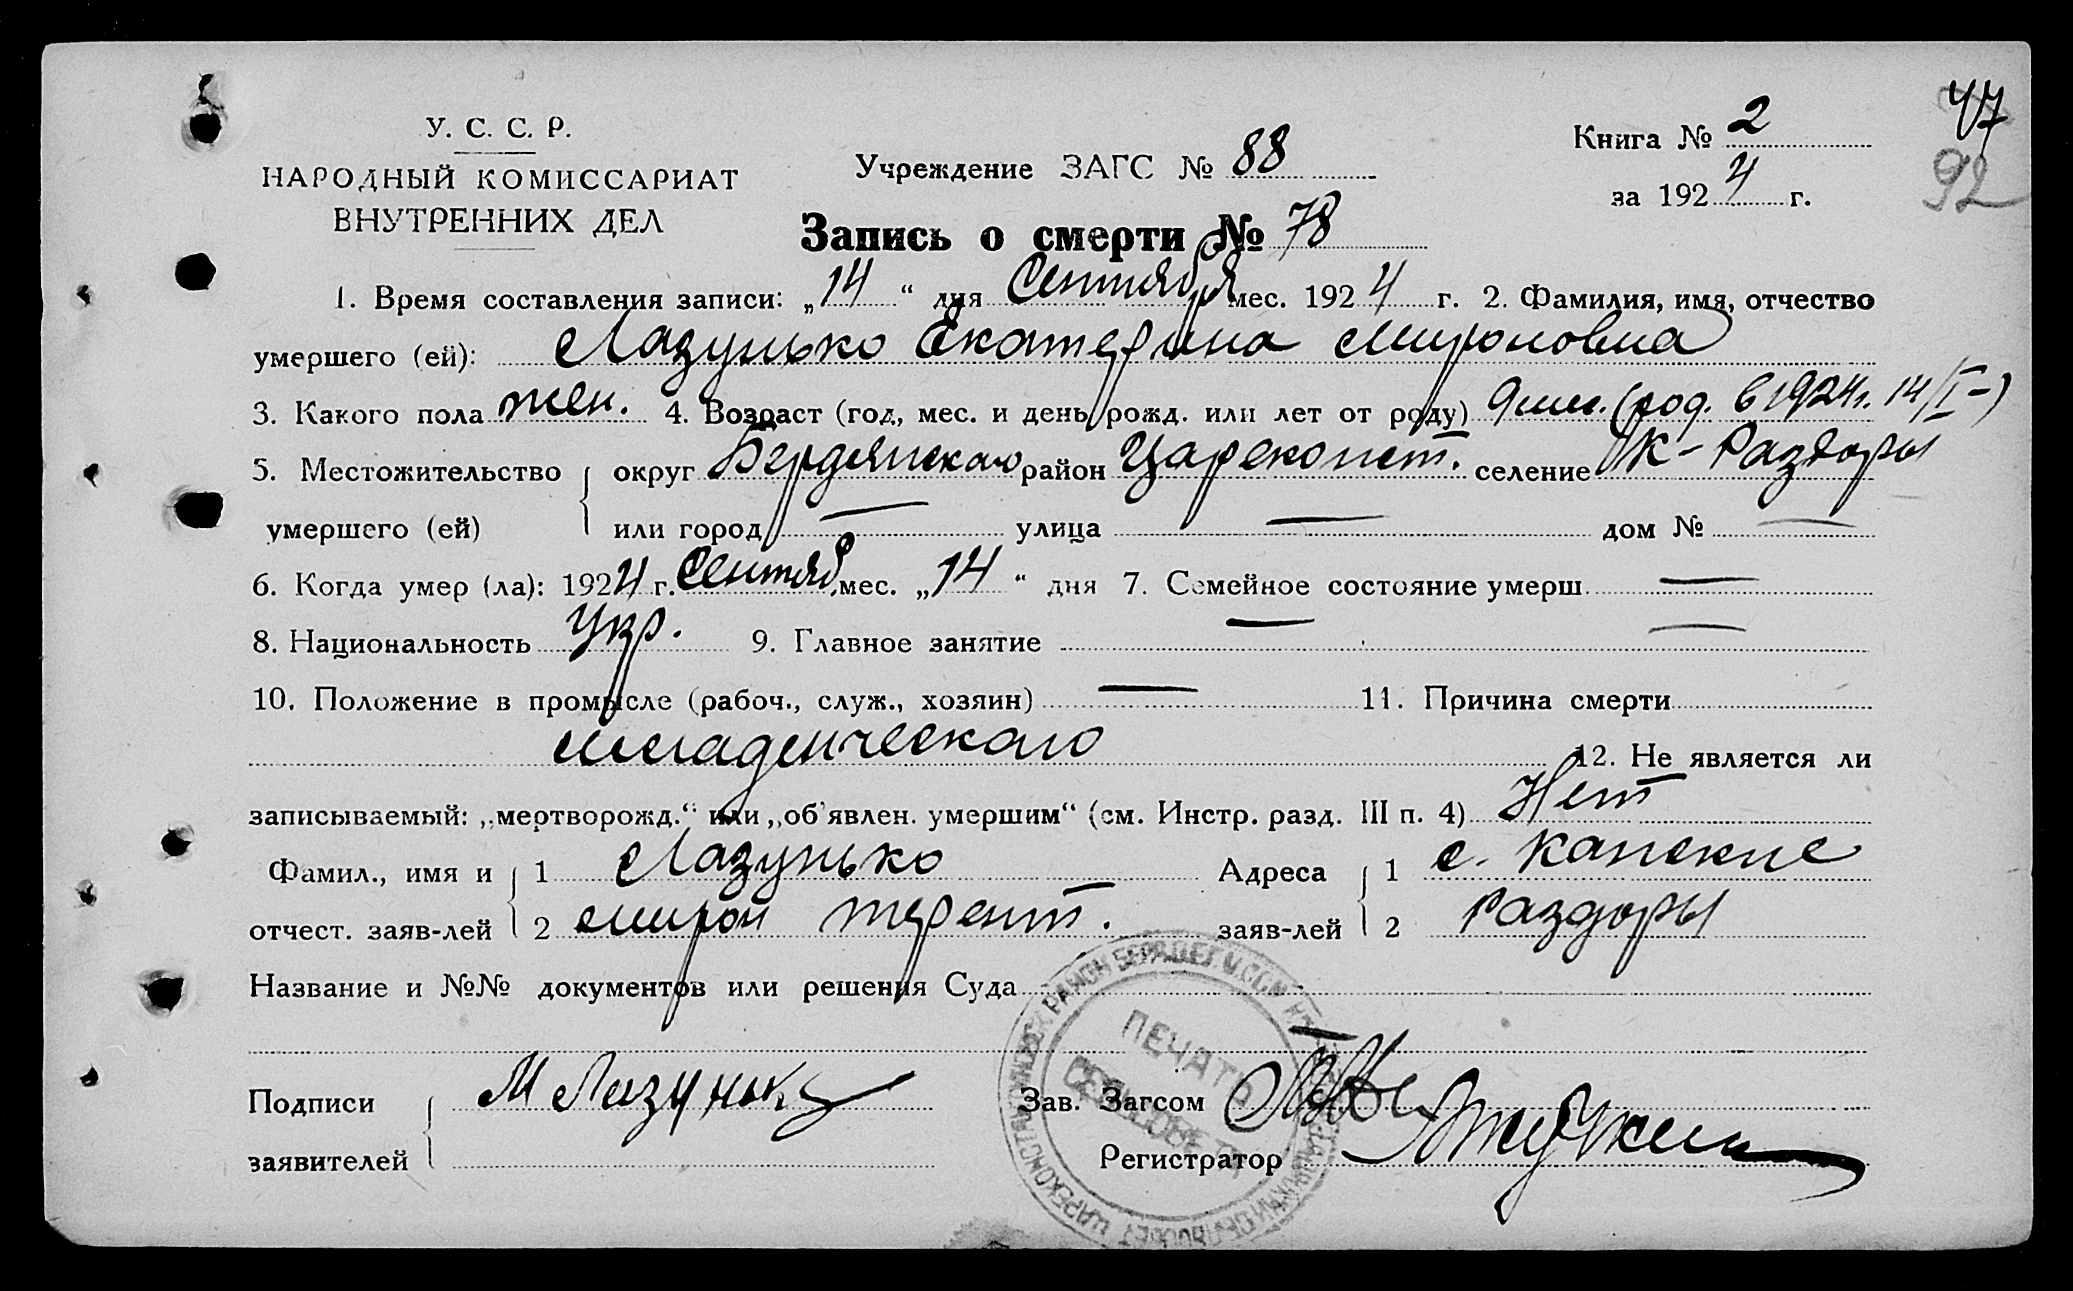 У. С. С. Р.
НАРОДНЫЙ КОМИССАРИАТ
ВНУТРЕННИХ ДЕЛ
Учреждение ЗАГС № 88
Книга № 2
за 1924 г.
47
92
Запись о смерти № 78
1. Время составления записи: „14“ дня Сентября мес. 1924 г. 2. Фамилия, имя, отчество
умершего (ей): Лазунько Екатерина Мироновна
3. Какого пола жен. 4. Возраст (год, мес. и день рожд. или лет от роду) 9 мм. (род. в 1924 г. 14/I-)
5. Местожительство округ Бердянскаго район Цареконст. селение К-Раздоры
умершего (ей) или город — улица — дом № —
6. Когда умер (ла): 1924 г. Сентяб. мес. „14“ дня 7. Семейное состояние умерш. —
8. Национальность Укр. 9. Главное занятие — —
10. Положение в промысле (рабоч., служ., хозяин) — 11. Причина смерти
младенческаго 12. Не является ли
записываемый: „мертворожд.“ или „об'явлен. умершим“ (см. Инстр. разд. III п. 4) Нет
Фамил., имя и 1 Лазунько Адреса 1 с. Канские
отчест. заяв-лей 2 Мирон Терент. заяв-лей 2 Раздоры
Название и №№ документов или решения Суда
Подписи М Лазунько Зав. Загсом
заявителей Регистратор
ПЕЧАТЬ
СЕЛЬСОВЕТА